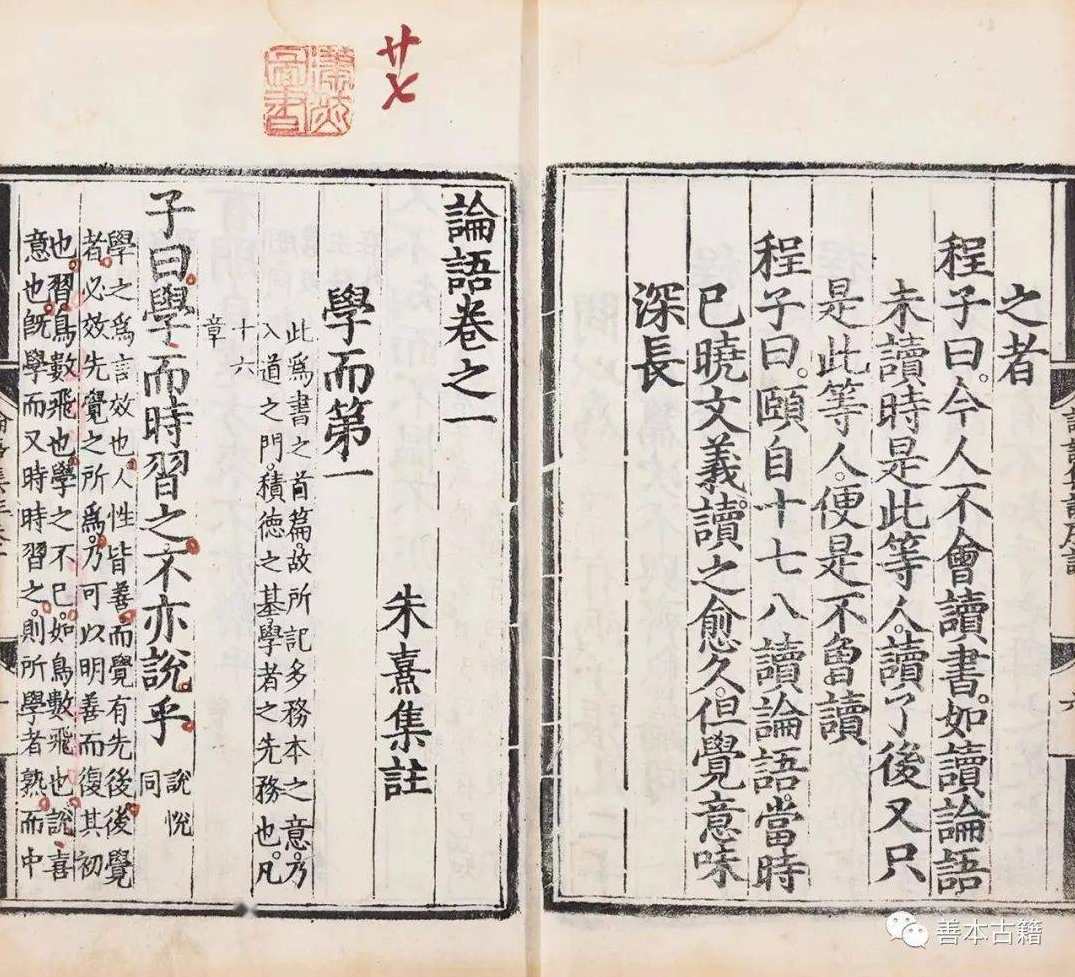 之者
程子曰。今人不會讀書。如讀論語
未讀時是此等人。讀了後又只
是此等人。便是不曾讀
程子曰。頤自十七八讀論語。當時
已曉文義。讀之愈久。但覺意味
深長
廿七
圖書
論語卷之一
朱熹集註
學而第一
此爲書之首篇。故所記多務本之意。乃
入道之門。積德之基。學者之先務也。凡
十六
章
子曰學而時習之不亦說乎
說悅
同
學之爲言效也人性皆善而覺有先後後覺
者必效先覺之所爲。乃可以明善而復其初
也習鳥數飛也學之不已。如鳥數飛也說喜
意也旣學而又時時習之。則所學者熟而中
善本古籍